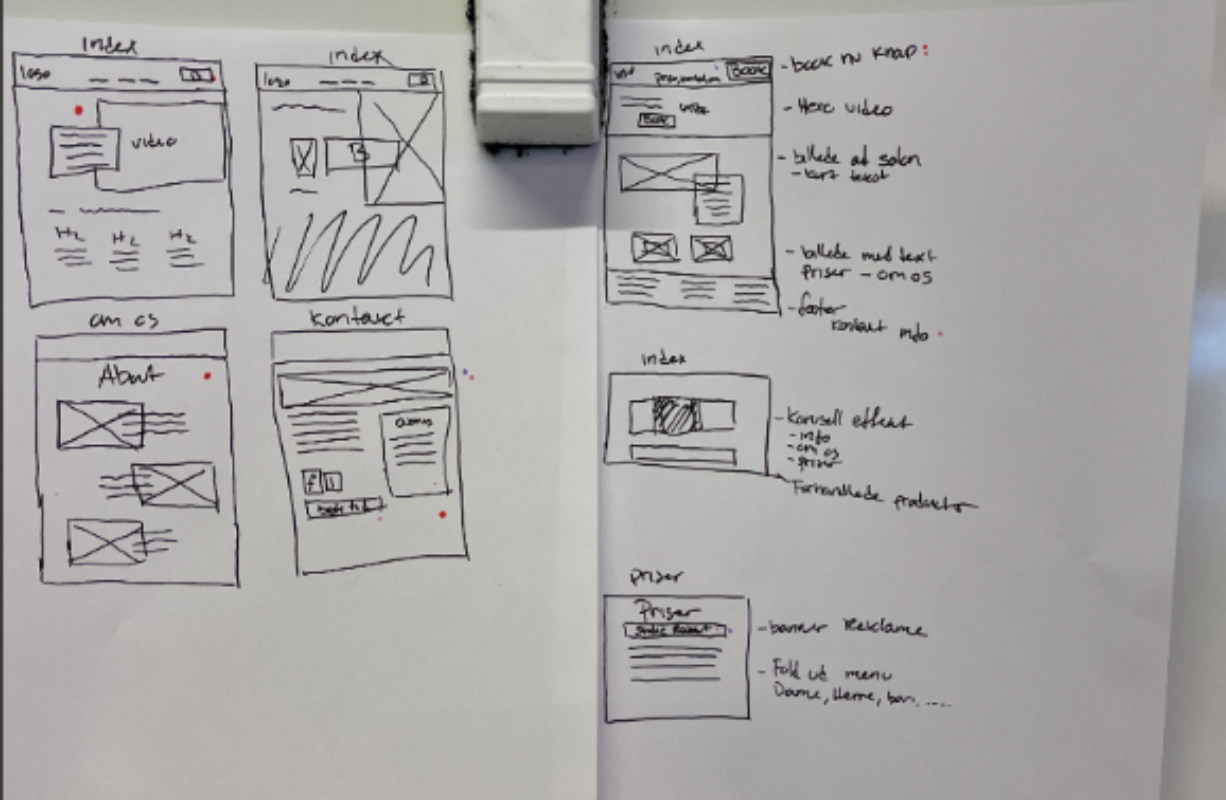 index
logo
video
H2 H2 H2
index
logo
B
om os
About
kontakt
f
index
Book
- book nu knap
- Hero video
- billede af salon
- kort tekst
- billede med text
priser - om os
- footer
kontakt info
index
- Karusell effekt
- info
- om os
- priser
Forhandlede productor
priser
Priser
- banner Reklame
- Fold ud menu
Dame, Herre, barn.....